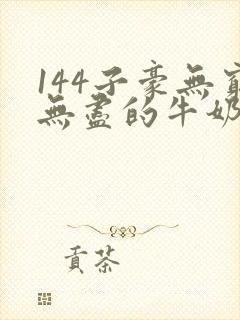 144子豪無窮
無盡的牛奶
貢茶